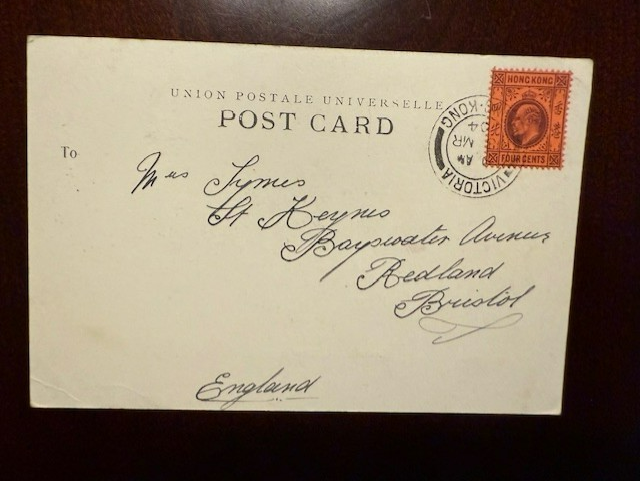 UNION POSTALE UNIVERSELLE
POST CARD
HONG KONG
FOUR CENTS
VICTORIA
G·KONG
AM
MR
04
To
Mrs Symes
St Keynes
Bayswater Avenue
Redland
Bristol
England